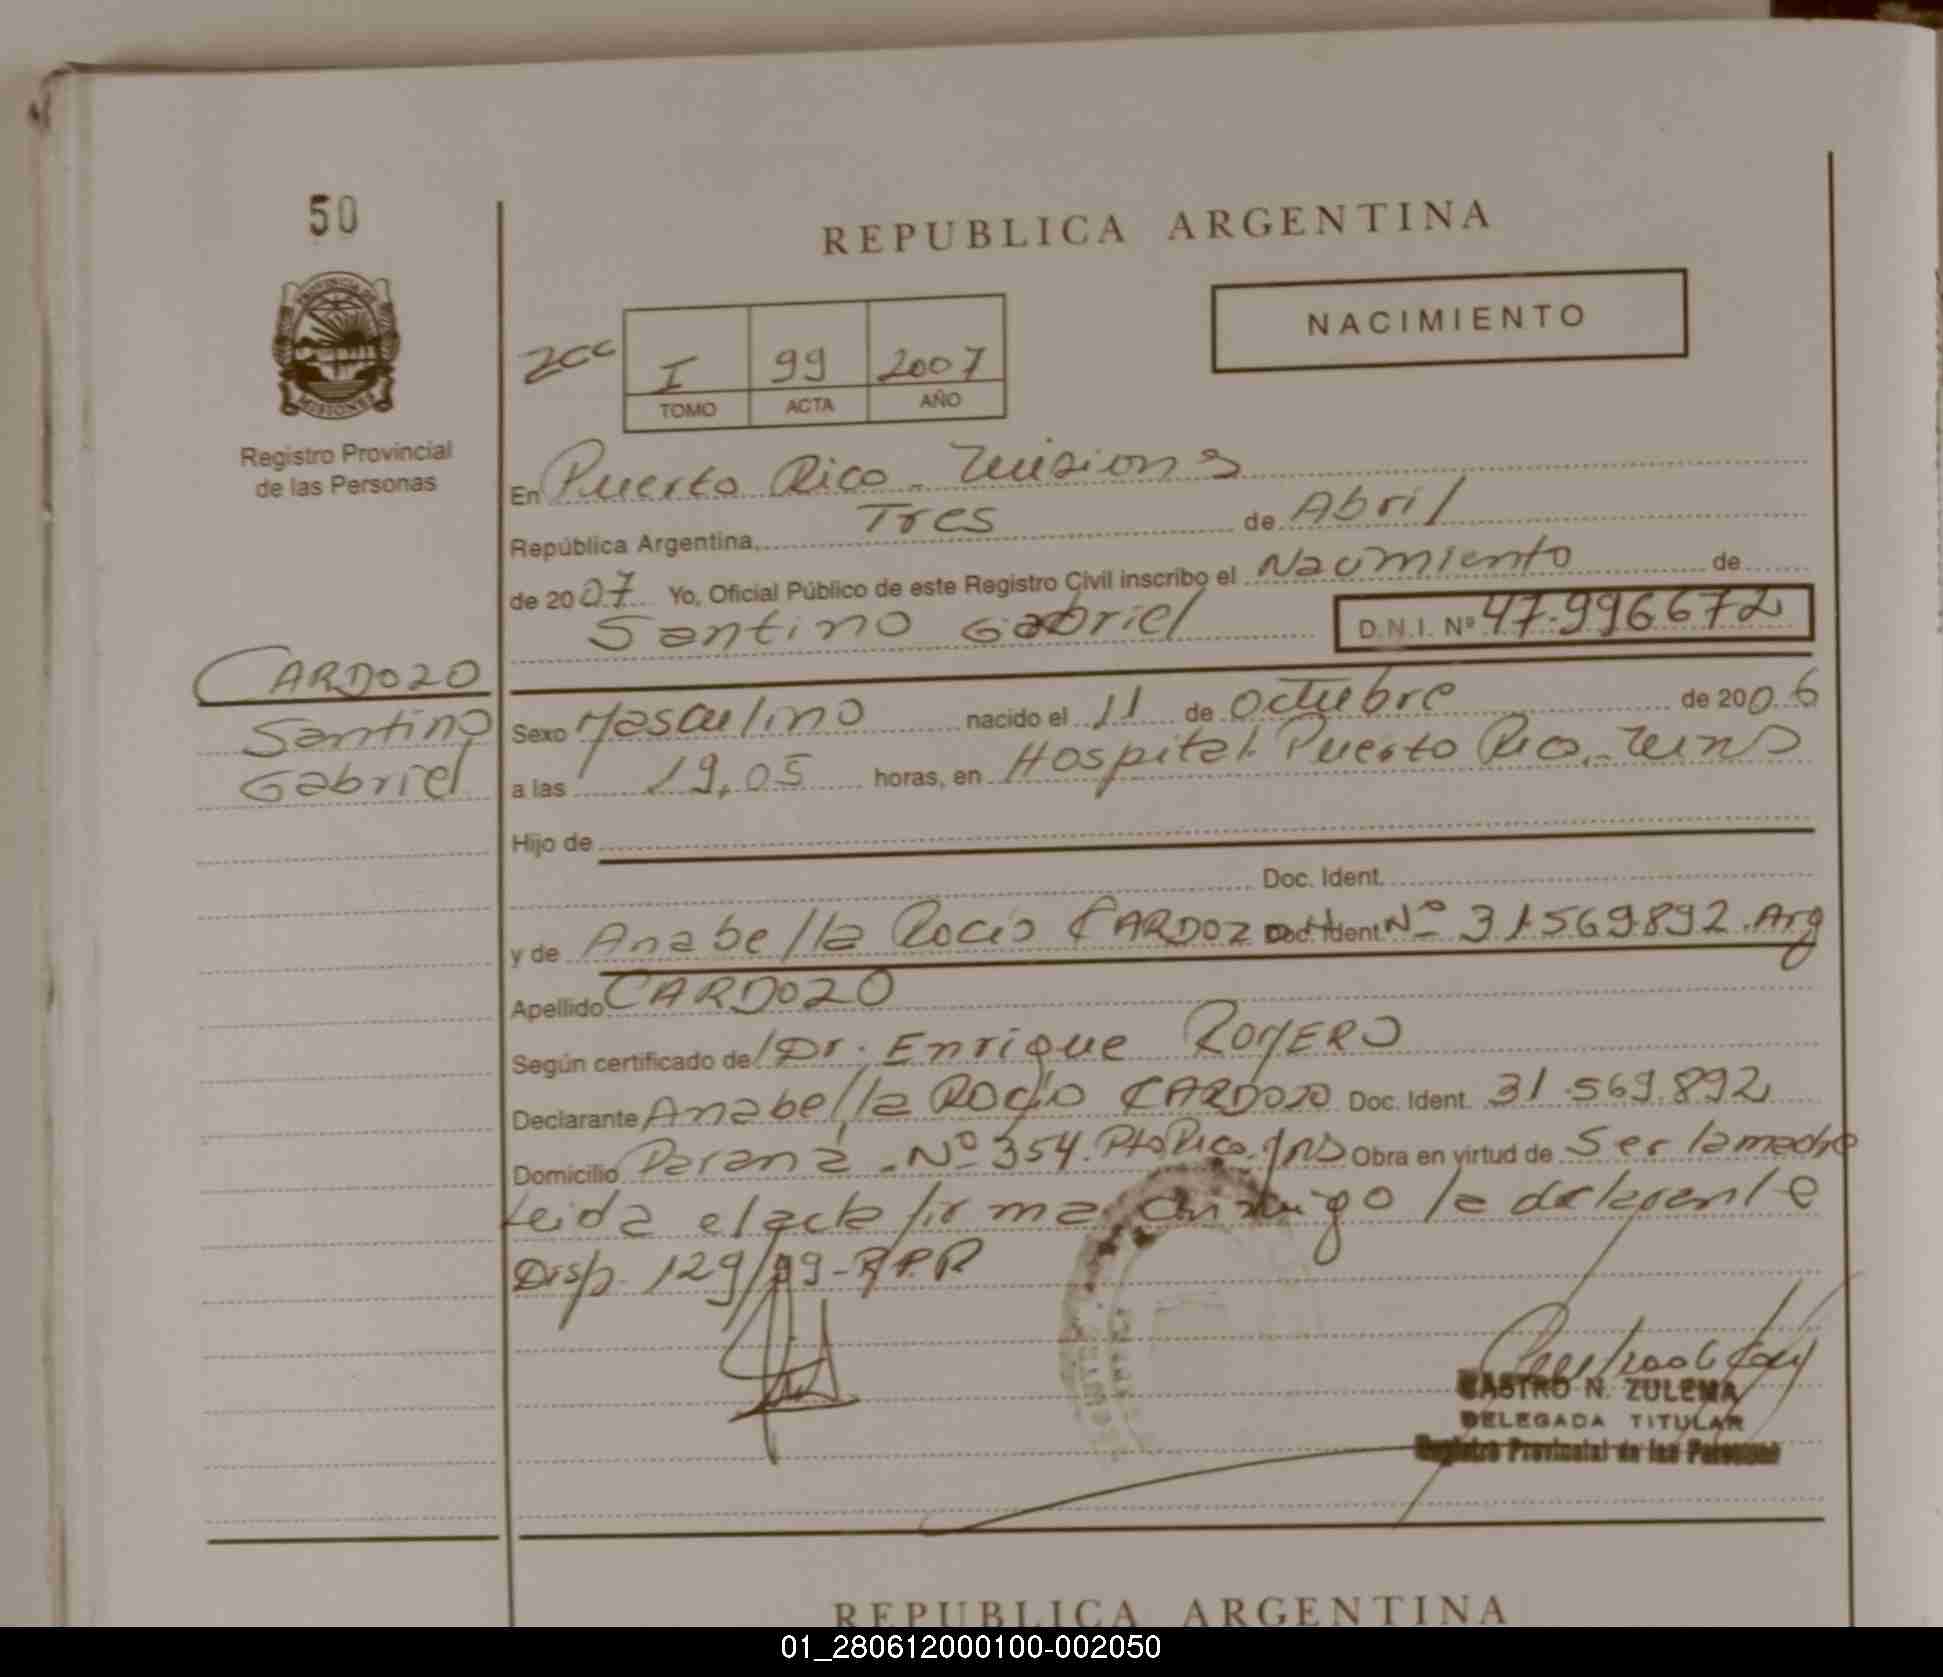 50
REPUBLICA ARGENTINA
NACIMIENTO
I 99 2007
TOMO ACTA AÑO
PROVINCIA DE
MISIONES
Registro Provincial
de las Personas
En Puerto Rico - Misiones
República Argentina, Tres de Abril
de 2007 Yo, Oficial Público de este Registro Civil inscribo el Nacimiento de
Santino Gabriel D.N.I. Nº 47.996672
CARDOZO
Santino
Gabriel
Sexo Masculino nacido el 11 de octubre de 2006
a las 19,05 horas, en Hospital Puerto Rico - Mns
Hijo de
Doc. Ident.
y de Anabella Rocio CARDOZO Doc. Ident. Nº 31.569.892. Arg
Apellido CARDOZO
Según certificado de Dr. Enrique ROMERO
Declarante Anabella Rocio CARDOZO Doc. Ident. 31.569.892
Domicilio Paraná - Nº 354. Pto Rico. Mns Obra en virtud de Ser la madre
Leida el acta firma conmigo la declarante
Disp. 129/99 - R.P.P
CASTRO N. ZULEMA
DELEGADA TITULAR
Registro Provincial de las Personas
REPUBLICA ARGENTINA
01_280612000100-002050